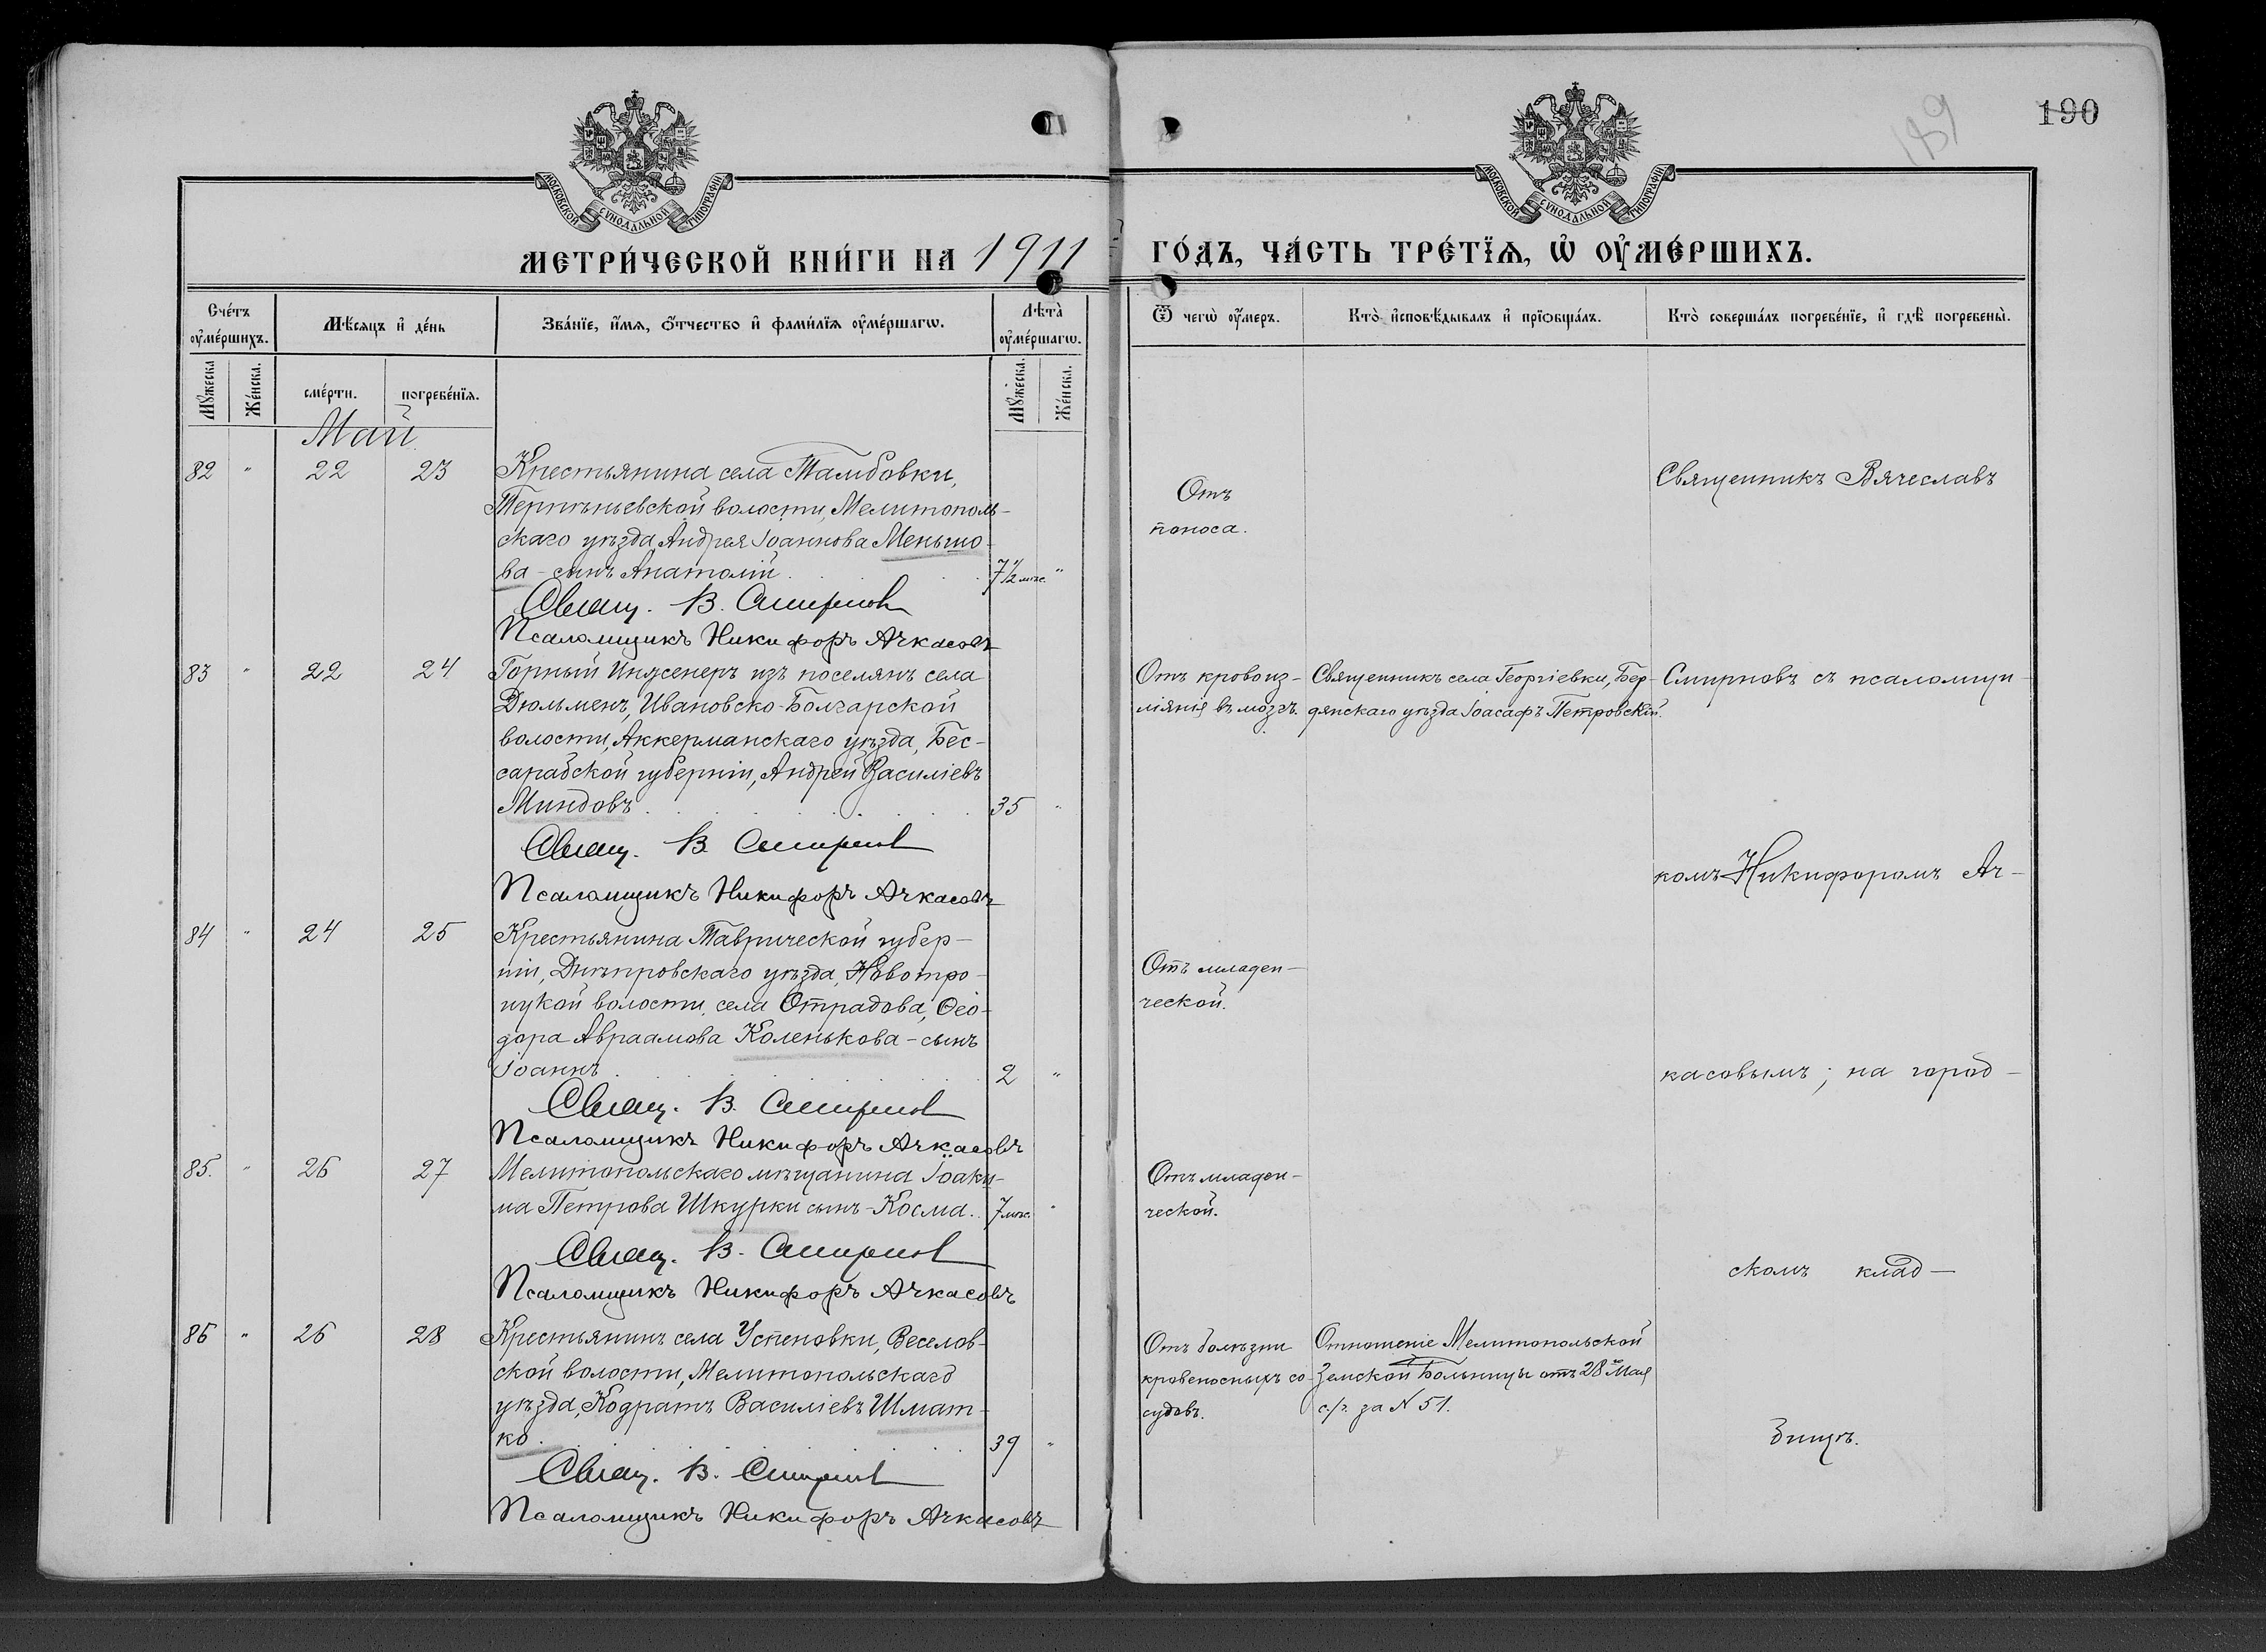 190
189
МОСКОВСКОЙ СѴНОДАЛЬНОЙ ТИПОГРАФІИ
МОСКОВСКОЙ СѴНОДАЛЬНОЙ ТИПОГРАФІИ
МЕТРИ́ЧЕСКОЙ КНИ́ГИ НА 1911
ГО́ДЪ, ЧА́СТЬ ТРЕ́ТЇѦ, Ѡ҆ ОУ҆МЕ́РШИХЪ.
Сче́тъ оу҆ме́ршихъ.
Мѣ́сяцъ и҆ де́нь
Зва́нїе, и҆́мѧ, ѻ҆́тчество и҆ фами́лїѧ оу҆ме́ршагѡ.
Лѣта̀ оу҆ме́ршагѡ.
Ѿ чегѡ̀ оу҆́меръ.
Кто̀ и҆сповѣ́дывалъ и҆ прїѡбща́лъ.
Кто̀ соверша́лъ погребе́нїе, и҆ гдѣ̀ погребены̀.
Мꙋ́жеска
Же́нска.
сме́рти.
погребе́нїѧ.
Мꙋ́жеска.
Же́нска.
Май
82 " 22 23 Крестьянина села Тамбовки,
Терпѣньевской волости, Мелитополь-
скаго уѣзда Андрея Іоаннова Меньшо-
ва - сынъ Анатолій. 7½ мѣс. "
Свящ. В. Смирнов
Псаломщикъ Никифоръ Ачкасовъ
Отъ
поноса.
Священникъ Вячеславъ
83 " 22 24 Горный Инженеръ изъ поселянъ села
Дюльменъ, Ивановско-Болгарской
волости, Аккерманскаго уѣзда, Бес-
сарабской губерніи, Андрей Василіевъ
Миндовъ 35 "
Свящ. В. Смирнов
Псаломщикъ Никифоръ Ачкасовъ
Отъ кровоиз-
ліянія въ мозгъ.
Священникъ села Георгіевки, Бер-
дянскаго уѣзда Іоасафъ Петровскій.
Смирновъ съ псаломщи-
комъ Никифоромъ Ач-
84 " 24 25 Крестьянина Таврической губер-
ніи, Днѣпровскаго уѣзда, Новотро-
ицкой волости, села Отрадова, Ѳео-
дора Авраамова Коленькова - сынъ
Іоаннъ 2 "
Свящ. В. Смирнов
Псаломщикъ Никифоръ Ачкасовъ
Отъ младен-
ческой.
касовымъ; на город-
85. " 26 27 Мелитопольскаго мѣщанина Іоаки-
ма Петрова Шкурки сынъ - Косма. 7 мѣс. "
Свящ. В. Смирнов
Псаломщикъ Никифоръ Ачкасовъ
Отъ младен-
ческой.
скомъ клад-
86 " 26 28 Крестьянинъ села Успеновки, Веселов-
ской волости, Мелитопольскаго
уѣзда, Кодратъ Василіевъ Шмат-
ко. 39 "
Свящ. В. Смирнов
Псаломщикъ Никифоръ Ачкасовъ
Отъ болѣзни
кровеносныхъ со-
судовъ.
Отношеніе Мелитопольской
Земской Больницы отъ 28 Мая
с./г. за № 51.
бищѣ.